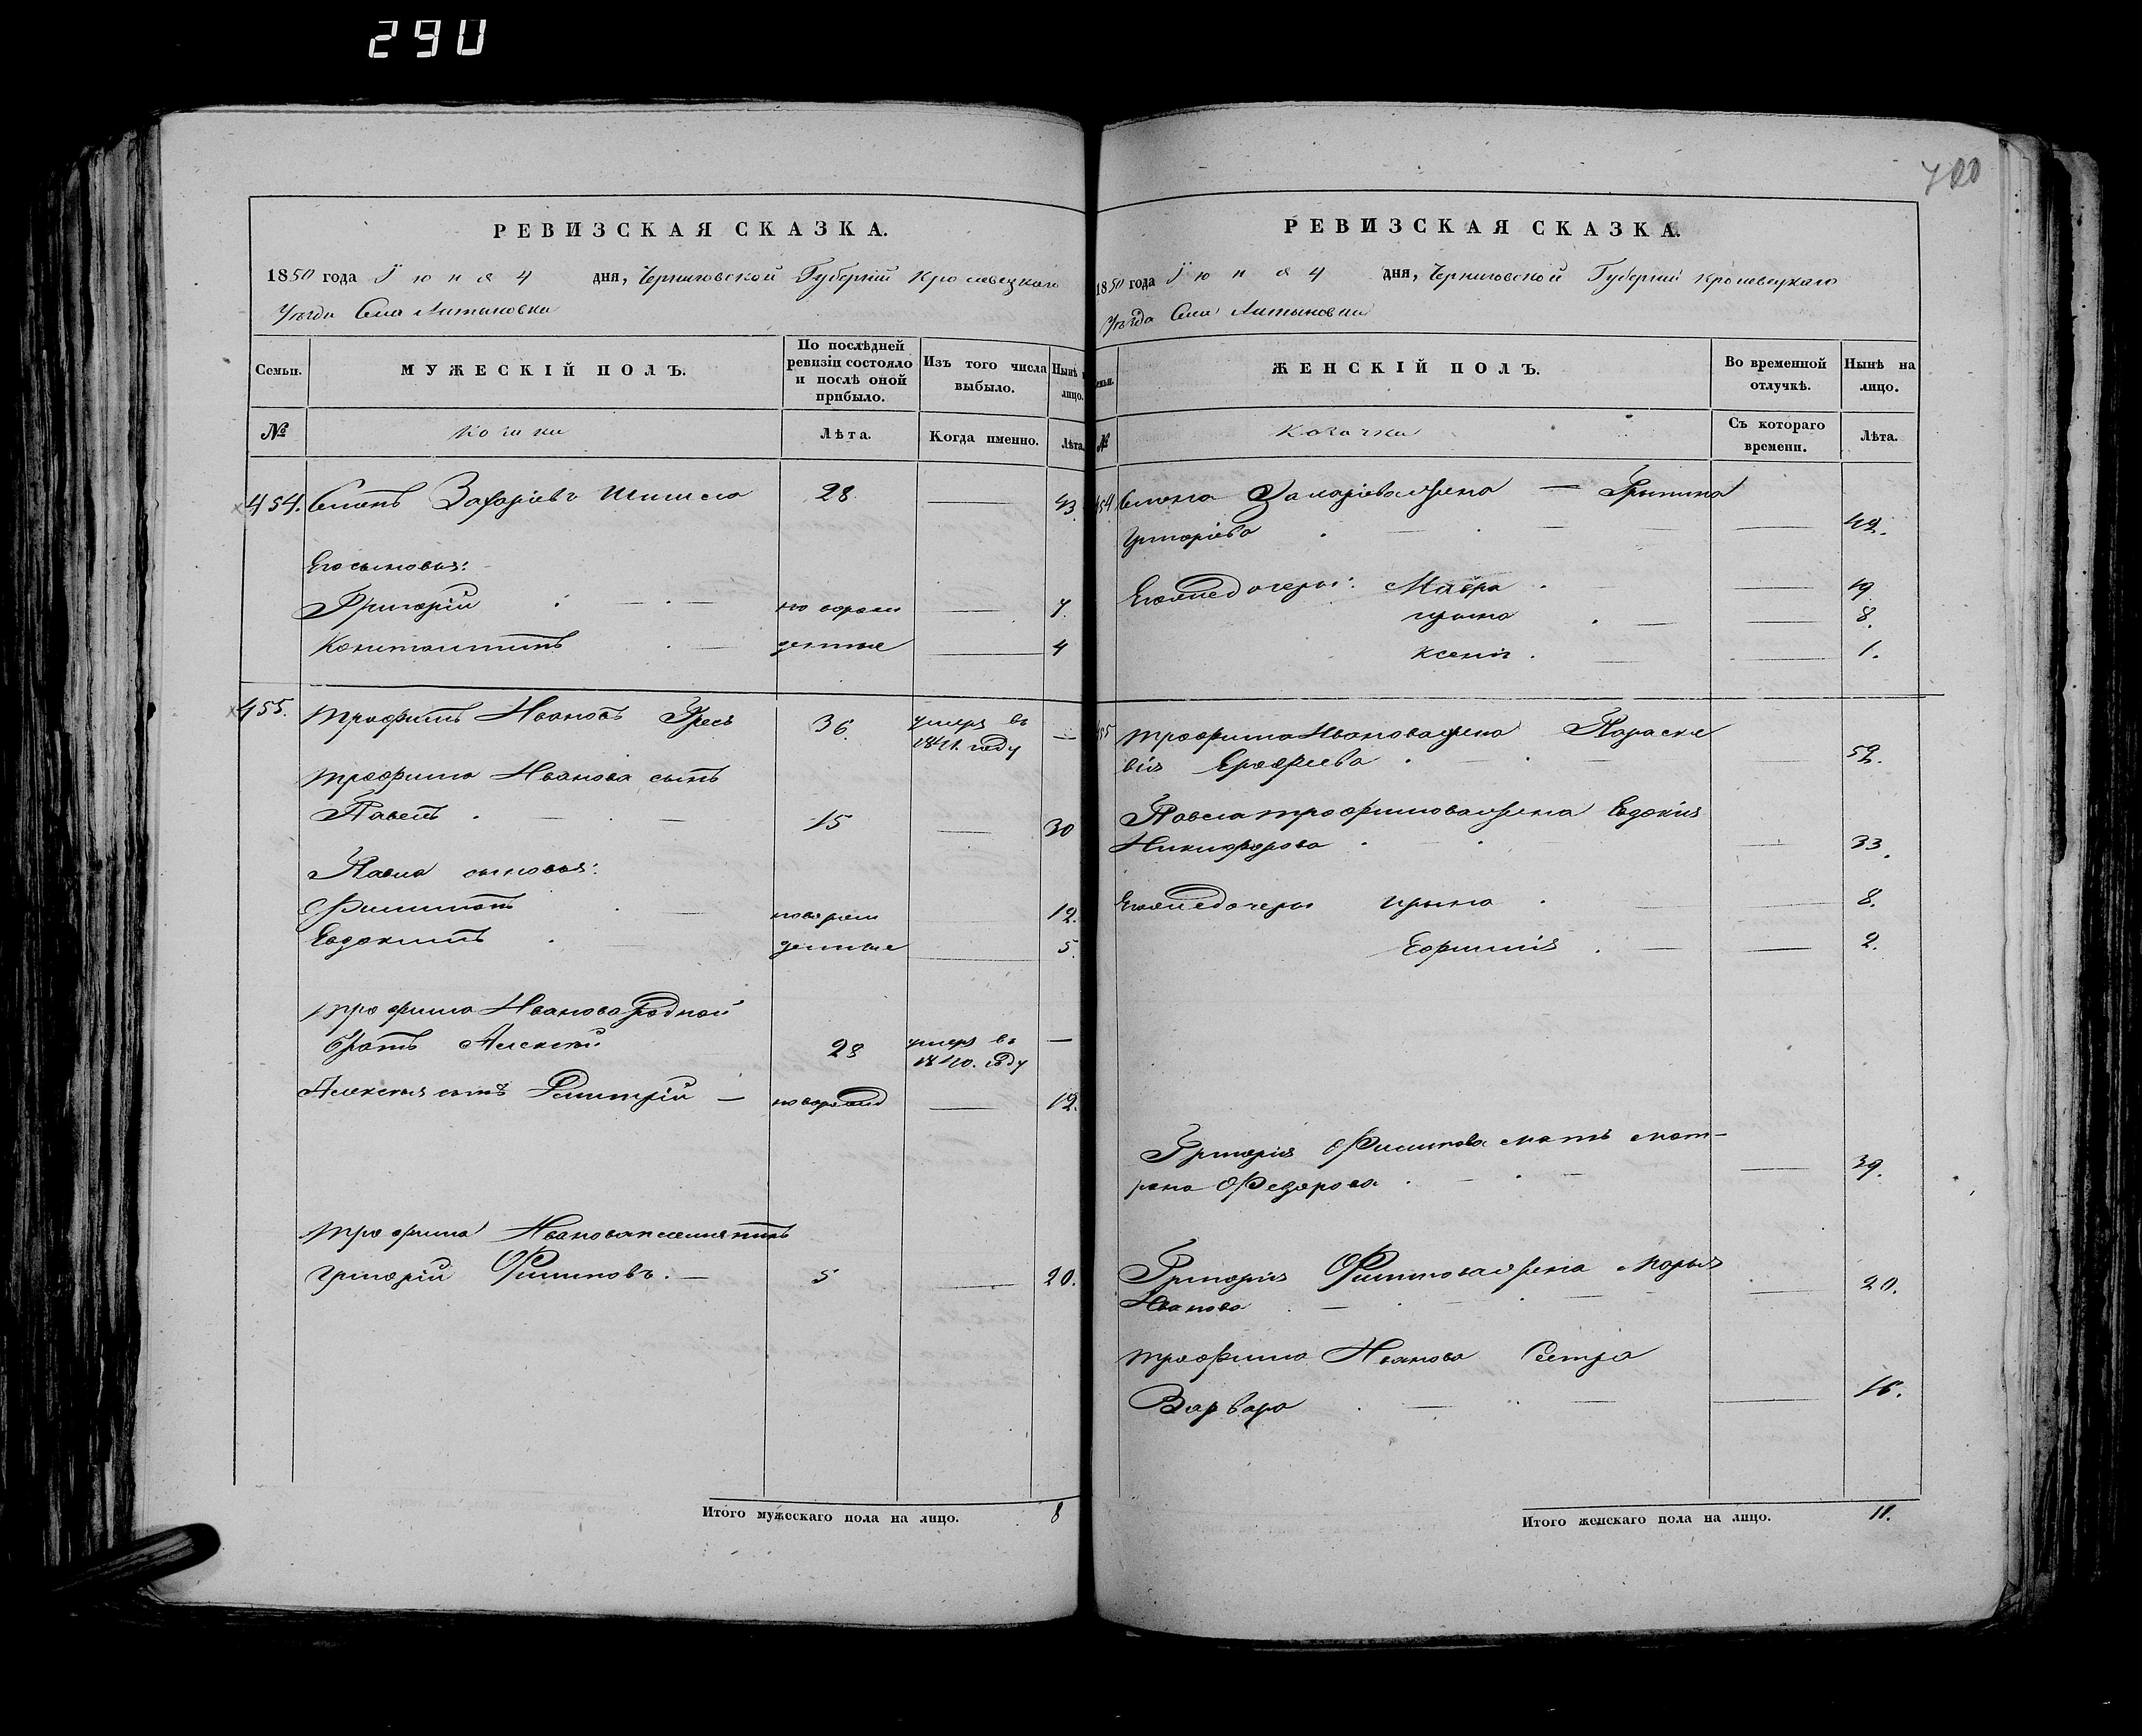 290
РЕВИЗСКАЯ СКАЗКА.
1850 года Іюня 4 дня, Черниговской Губерніи Кролевецкаго
Уезда Села Литвиновки
Семьи. МУЖЕСКІЙ ПОЛЪ. По послѣдней ревизіи состояло и послѣ оной прибыло. Изъ того числа выбыло. Нынѣ на лицо.
№ Козачки Лѣта. Когда именно. Лѣта.
454. Семенъ Захаріевъ 28 — 43.
Его сыновья:
Григорій . — . — новорож — 7.
Константинъ . — денные — 4
455. Трофимъ Ивановъ Гресь 36. умеръ въ 1841. году —
Трофима Иванова сынъ
Павелъ . — . — 15 — 30
Павла сыновья:
Филипъ . — новорож 12.
Евдокимъ . — денные — 5.
Трофима Иванова Родной
братъ Алексей 28 умеръ въ 1840. году —
Алексея сынъ Димитрій — новорожд — 12.
Трофима Иванова племянникъ
Григорій Филиповъ. — 5 — 20.
Итого мужескаго пола на лицо. 8
700
РЕВИЗСКАЯ СКАЗКА.
1850 года Іюня 4 дня, Черниговской Губерніи Кролевецкаго
Уезда Села Литвиновки
Семьи. ЖЕНСКІЙ ПОЛЪ. Во временной отлучкѣ. Нынѣ на лицо.
№ Козачки Съ котораго времени. Лѣта.
454 Семена Захаріева жена —
Григоріева . — . — — 42.
Его же дочери: Мавра . — 19
Ирина . — — 8.
Ксенія . — — 1.
455 Трофима Иванова жена Параске
вія Ерофеева . — . — 52.
Павла Трофимова жена Евдокия
Никифорова . — . — 33.
Его же дочери Ирина . — 8.
Ефимия . — — 2.
Григорія Филипова мать Мат-
рена Федорова . — . — — 39.
Григорія Филипова жена Марья
Иванова . — . — . — 20.
Трофима Иванова Сестра
Варвара . — . — — 16.
Итого женскаго пола на лицо. 11.